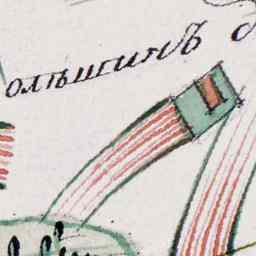 олѣшинъ